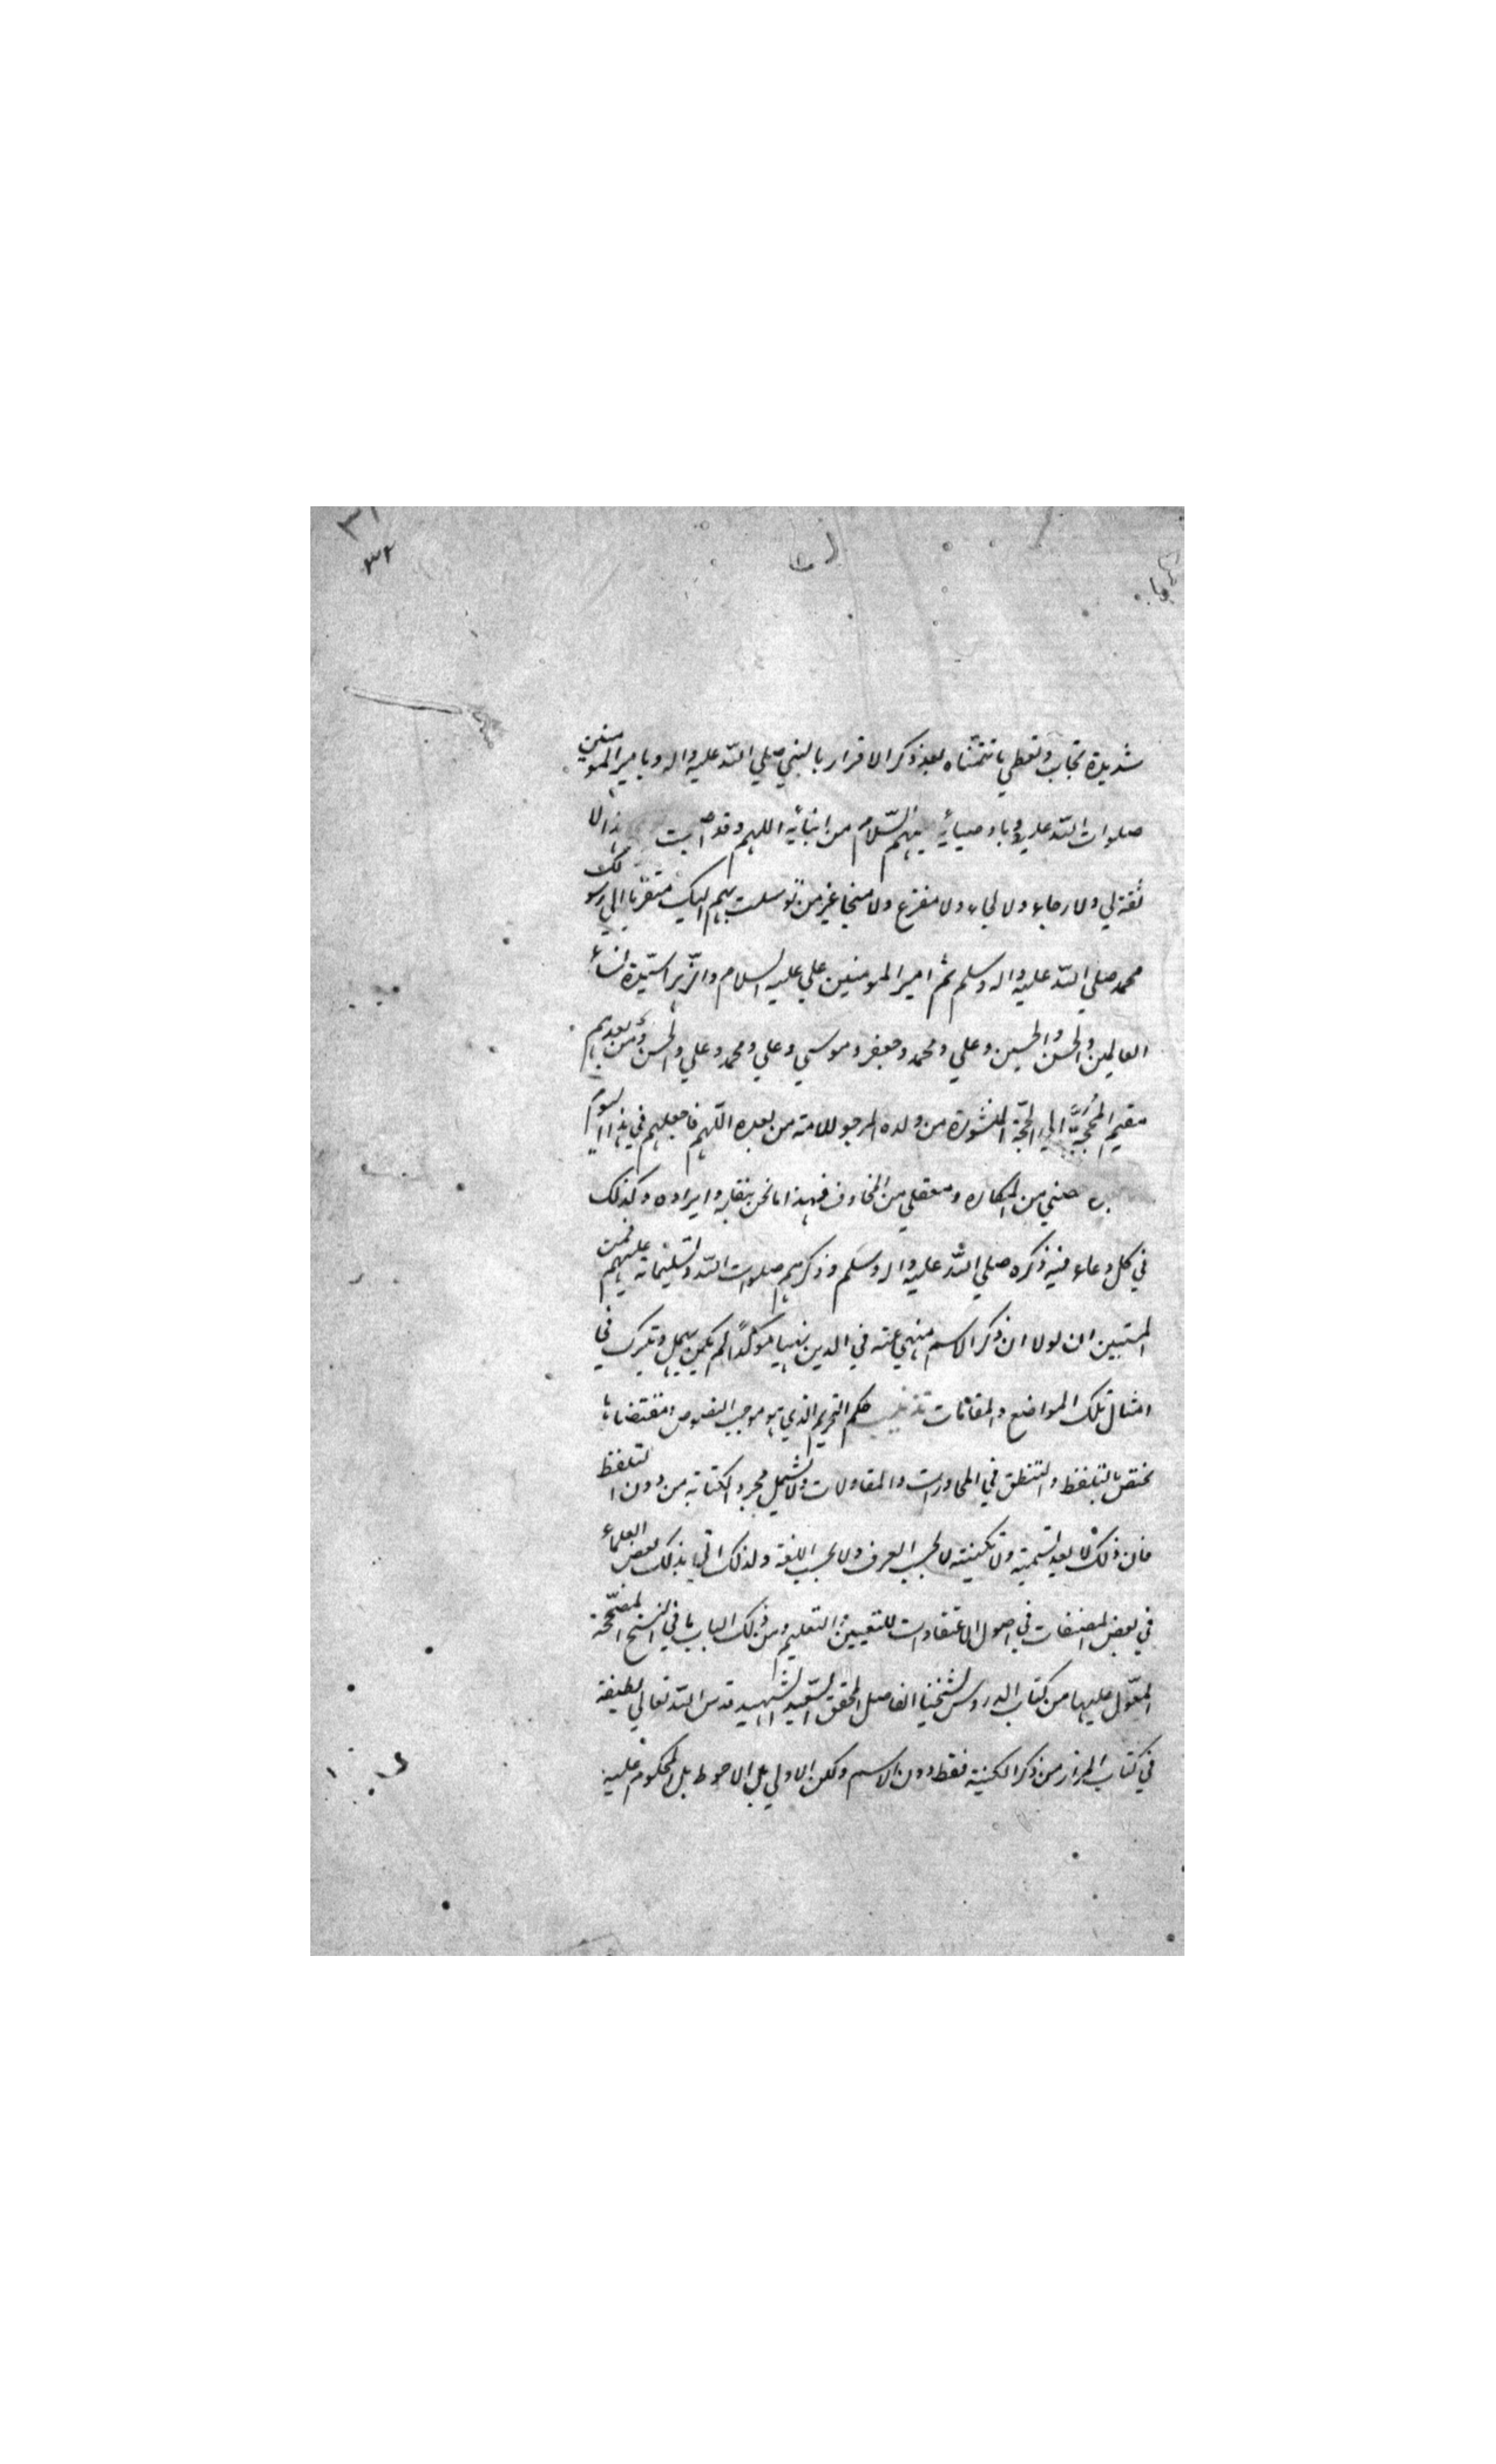 ٣١
٣٢
شديدة تجاب وتعطي ما تتمناه بعد ذكر الاقرار بالنبي صلي الله عليه واله وبامير المومنين
صلوات الله عليه وباوصيائه عليهم السلام من ابنائه اللهم وقد اصبحت هذا لا
ثقة لي ولا رجاء ولا لجاء ولا مفزع ولا منجا غير من توسلت بهم اليك متقربا الي رسولك
محمد صلي الله عليه واله وسلم ثم امير المومنين علي عليه السلام والزهراء سيدة نساء
العالمين والحسن والحسين وعلي ومحمد وجعفر وموسي وعلي ومحمد وعلي والحسن ومن بعدهم
مقيم المحجة الي الحجة المنشورة من ولده المرجو للامة من بعده اللهم فاجعلهم في هذا اليوم
حصني من المكاره ومعقلي من المخاوف فهذا ما نحن بنقله وايراده وكذلك
في كل دعاء فيه ذكره صلي الله عليه واله وسلم وذكرهم صلوات الله وتسليماته عليهم فمن
المتبين ان لولا ان ذكر الاسم منهي عنه في الدين نهيا موكدا لم يكن يهمل ويترك في
امثال تلك المواضع والمقامات تذنيب حكم التحريم الذي هو موجب النصوص ومقتضاها
يختص بالتلفظ والتنطق في المحاورات والمقاولات ولا يشمل مجرد الكتابة من دون التلفظ
فان ذلك لا يعد تسمية ولا تكنية لا بحسب العرف ولا بحسب اللغة ولذلك اتي بذلك بعض العلماء
في بعض المصنفات في اصول الاعتقادات للتعيين والتعليم ومن ذلك الباب ما في النسخ المصححة
المعول عليها من كتاب الدروس لشيخنا الفاضل المحقق السعيد الشهيد قدس الله تعالي لطيفه
في كتاب المزار من ذكر الكنية فقط دون الاسم ولكن الاولي بل الاحوط بل المحكوم عليه